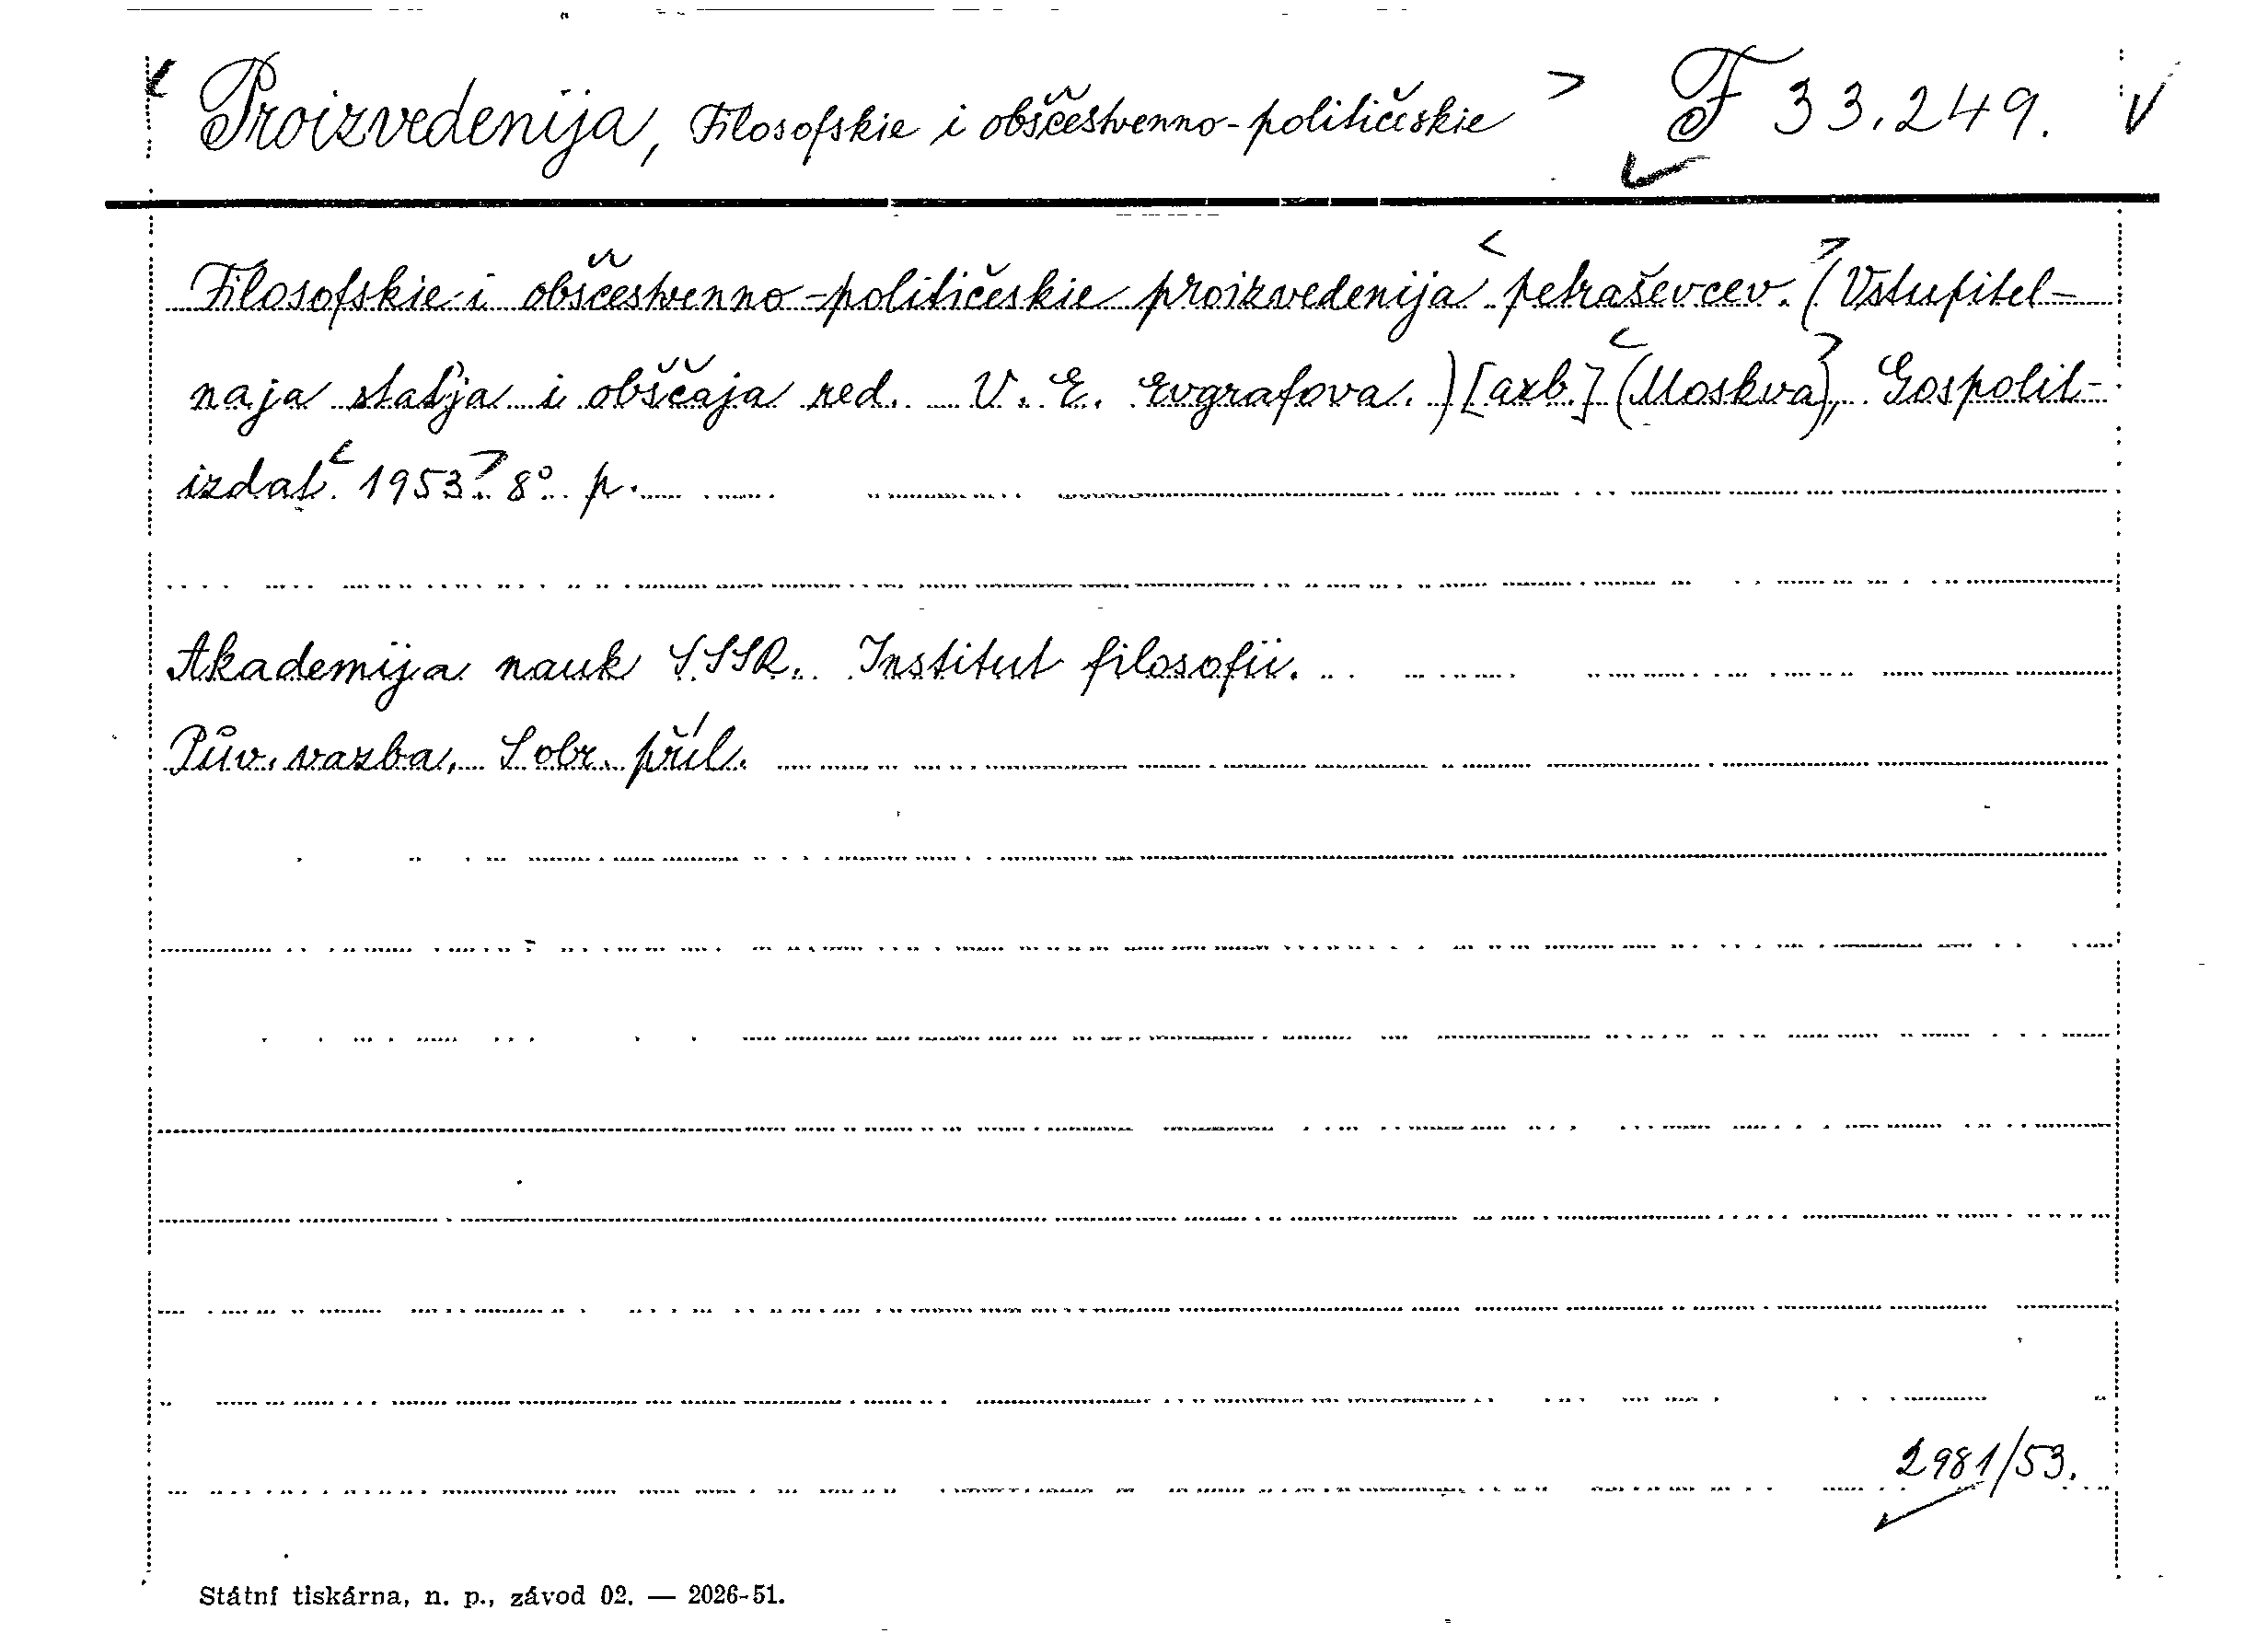 < Proizvedenija, Filosofskie i obščestvenno-političeskie > F 33.249. V
Filosofskie i obščestvenno-političeskie proizvedenija < petraševcev. > (Vstupitel-
naja staťja i obščaja red. V. E. Evgrafova.) [azb.] < (Moskva) >, Gospolit-
izdat < 1953. > 8° p.
Akademija nauk SSSR. Institut filosofii.
Pův. vazba. S obr. příl.
2981/53.
Státní tiskárna, n. p., závod 02. — 2026-51.